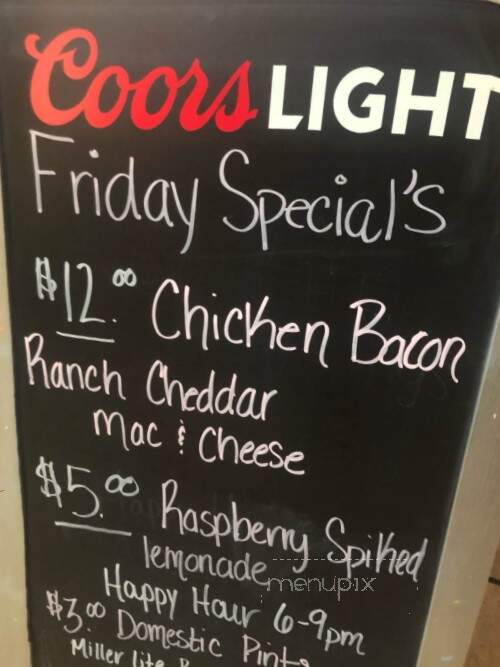 Coors LIGHT
Friday Special's
$12.00 Chicken Bacon
Ranch Cheddar
Mac & Cheese
$5.00 Raspberry Spiked
lemonade
menupix
Happy Hour 6-9pm
$3.00 Domestic Pints
Miller lite